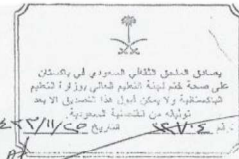 يصادق الملحق الثقافي السعودي في باكستان
على صحة ختم لجنة التعليم العالي بوزارة التعليم
الباكستانية ولا يمكن قبول هذا التصديق الا بعد
توثيقه من القنصلية السعودية.
رقم التاريخ